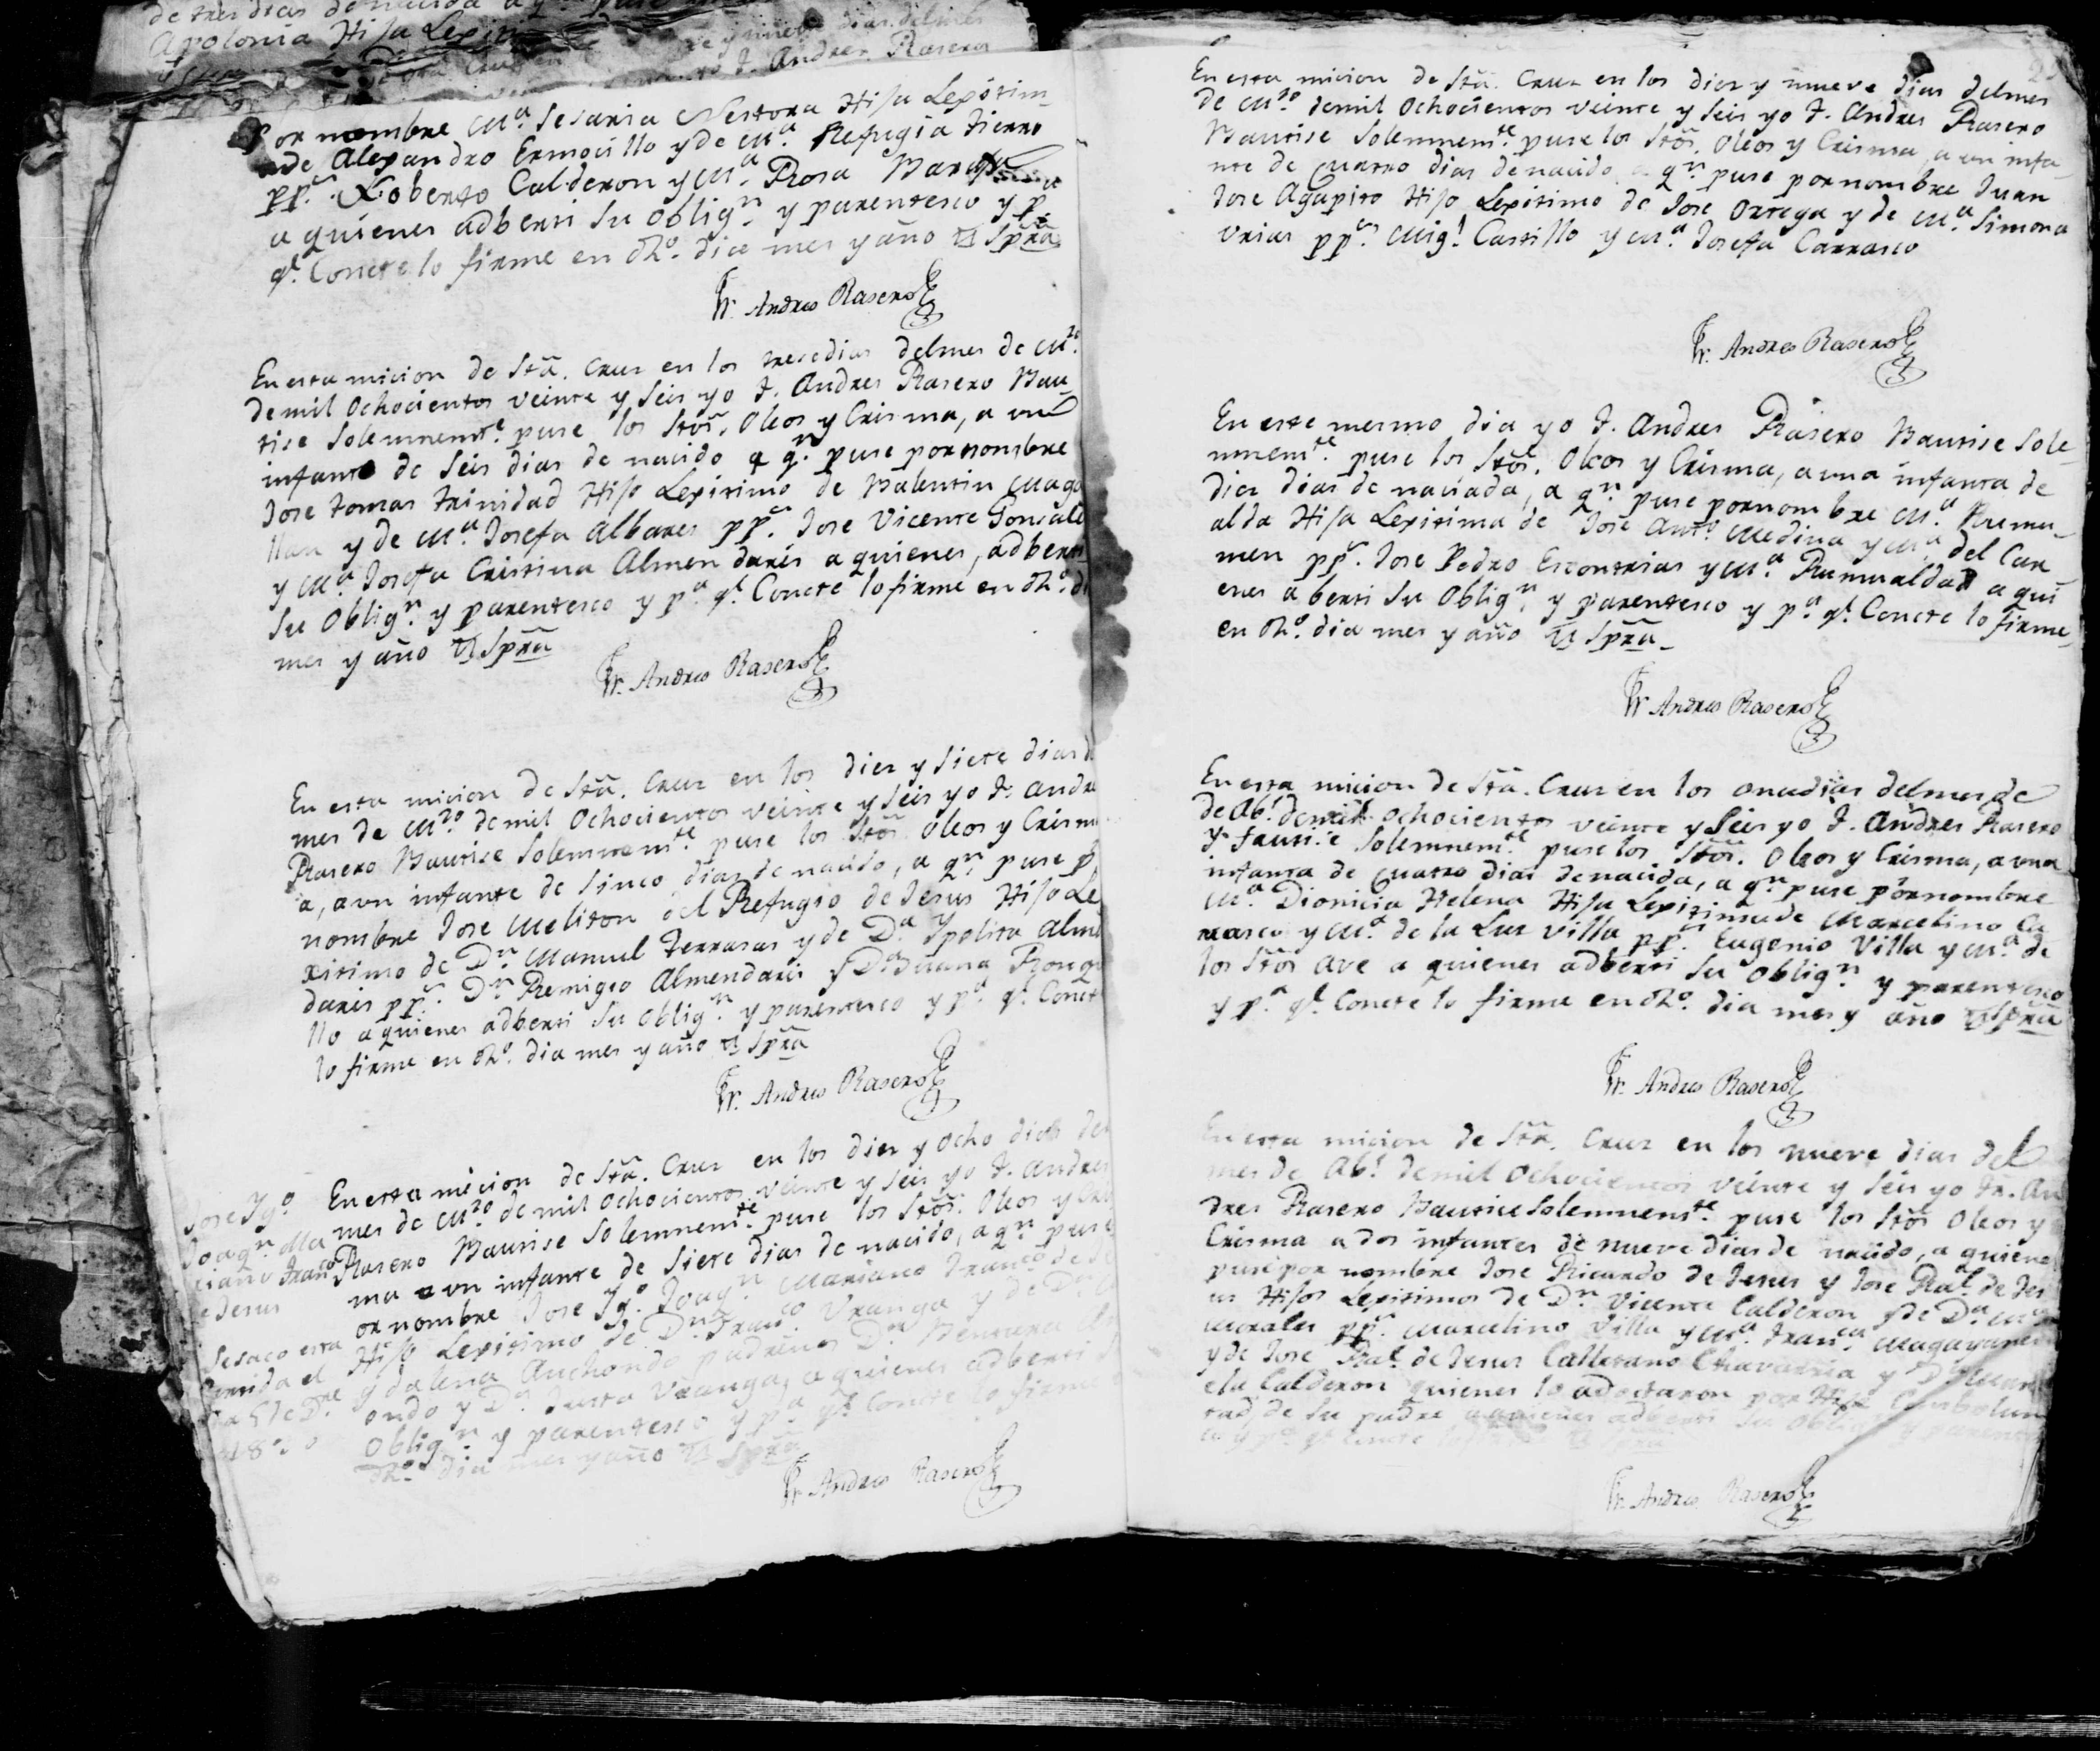 de tres dias de nacida a qn. puse
Apolonia Hija Lexi
y nueve dias delmes
yo F. Andres Rasero
Por nombre Ma. Sesaria Nestora Hija Lexitim
a de Alexandro Ermosillo y de Ma. Refugia Fierro
pps. Roberto Calderon y Ma. Rosa
a quienes adberti su oblign. y parentesco y pa.
ql. Concte lo firme en dho. dia mes y año Ut Spra
Fr. Andres Rasero
En esta micion de Sta. Crus en los trese dias delmes de Mzo.
demil Ochocientos veinte y seis yo F. Andres Rasero Bau-
tise Solemnemte. puse los Stos. Oleos y Crisma, a un
infante de seis dias de nacido a qn. puse por nombre
Jose Tomas Trinidad Hijo Lexitimo de Balentin Maga
llan y de Ma. Josefa Albares pps. Jose Vicente Gonsale
y Ma. Josefa Cristina Almendaris a quienes, adberti
Su Oblign. y parentesco y pa. ql. Concte lo firme en dho. di
mes y año Ut Spra
Fr. Andres Rasero
En esta micion de Sta. Crus en los dies y siete dias d
mes de Mzo. demil Ochocientos veinte y seis yo F. Andre
Rasero Bautise Solemnemte. puse los Stos. Oleos y Crism
a, a un infante de sinco dias de nacido, a qn. puse p
nombre Jose Meliton del Refugio de Jesus Hijo Le
xitimo de Dn. Manuel Terrasas y de Da. Ypolita Almen
daris pps. Dn. Remigio Almendaris y Da. Juana Ronqui
llo a quienes adberti su oblign. y parentesco y pa. ql. Conct
lo firme en dho. dia mes y año Ut Spra
Fr. Andres Rasero
Jose Ygo.
Joaqn. Ma
riano Franco
e Jesus
Sesaco esta
Partida el
dia 51 de De
1830
En esta micion de Sta. Crus en los dies y ocho dias del
mes de Mzo. de mil ochocientos veinte y seis yo F. Andres
Rasero Bautise Solemnemte. puse los Stos. Oleos y Cris
ma a un infante de siete dias de nacido, a qn. puse
or nombre Jose Ygo. Joaqn. Mariano Franco de Je
Hijo Lexitimo de Dn. Franco. Uranga y de Da.
y dalena Anchondo padrinos Dn. Bentura
ondo y Da. Justa Uranga, a quienes adberti
Oblign. y parentesco y pa. ql. Concte lo firme
dho. dia mes y año Ut Spra
Fr. Andres Rasero
En esta micion de Sta. Crus en los dies y nueve dias delmes
de Mzo. demil Ochocientos veinte y seis yo F. Andres Rasero
Bautise Solemnemte. puse los Stos. Oleos y Crisma, a un infa-
nte de cuatro dias denacido a qn. puse por nombre Juan
Jose Agapito Hijo Lexitimo de Jose Ortega y de Ma. Simona
Urias pps. Migl. Castillo y Ma. Josefa Carrasco
Fr. Andres Rasero
En este mesmo dia yo F. Andres Rasero Bautise Sole-
mnemte. puse los Stos. Oleos y Crisma, a una infanta de
dies dias de naciada, a qn. puse por nombre Ma. Rumu-
alda Hija Lexitima de Jose Anto. Medina y Ma. del Car
men pps. Jose Pedro Escontrias y Ma. Rumualda a qui
enes a berti su Oblign. y parentesco y pa. ql. Concte lo firme
en dho. dia mes y año Ut Spra
Fr. Andres Rasero
En esta micion de Sta. Crus en los onse dias delmes de
de Abl. demil ochocientos veinte y seis yo F. Andres Rasero
Solemnemte. puse los Stos. Oleos y Crisma, a una
infanta de cuatro dias denacida, a qn. puse por nombre
Ma. Dionicia Helena Hija Lexitima de Marcelino Ca
rrasco y Ma. de la Lus Villa pps. Eugenio Villa y Ma. de
los Stos Ave a quienes adberti su oblign. y parentesco
y pa. ql. Concte lo firme en dho. dia mes y año Ut Spra
Fr. Andres Rasero
En esta micion de Sta. Crus en los nueve dias del
mes de Abl. demil Ochocientos veinte y seis yo Fr. An
dres Rasero Bautise Solemnemte. puse los Stos Oleos y
Crisma a dos infantes de nueve dias de nacido, a quiene
puse por nombre Jose Ricardo de Jesus y Jose Ral. de Jes
us Hijos Lexitimos de Dn. Vicente Calderon y de Da. Ma.
Morales pps. Marcelino Villa y Ma. Franca. Magayanes
y de Jose Ral. de Jesus Calletano Chavarria y Da. Man
ela Calderon quienes lo adoctaron por Hijo Conbolun
tad, de su padre a quienes adberti su oblign y parentes
co y pa. ql. Concte Ut Spra
Fr. Andres Rasero